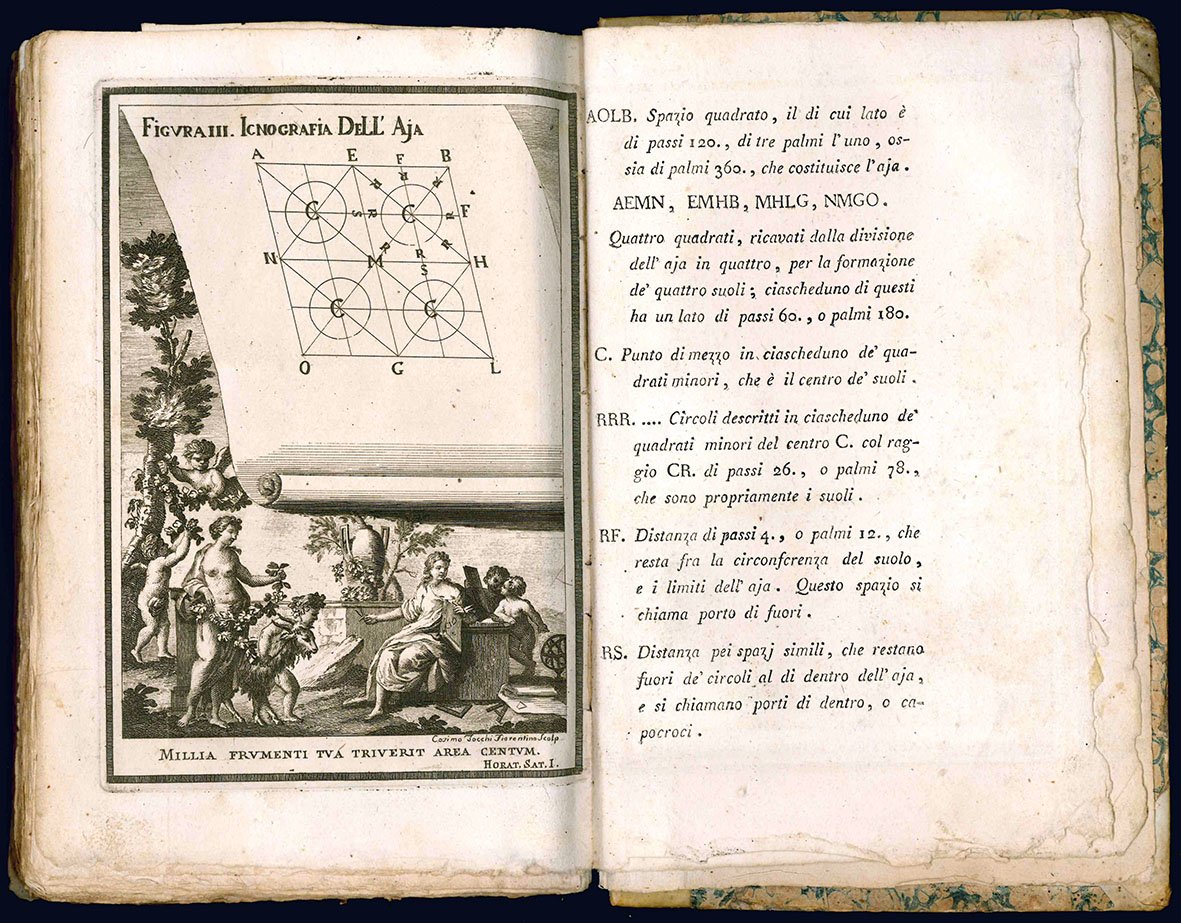 FIGVRA III. ICNOGRAFIA DELL' AJA
A E F B
R R R
C C S R R F
N M R R R H
S
C C
O G L
Cosimo Zocchi Fiorentino Sculp
MILLIA FRVMENTI TVA TRIVERIT AREA CENTVM.
HORAT. SAT. I.
AOLB. Spazio quadrato, il di cui lato è
di passi 120., di tre palmi l'uno, os-
sia di palmi 360., che costituisce l'aja.
AEMN, EMHB, MHLG, NMGO.
Quattro quadrati, ricavati dalla divisione
dell' aja in quattro, per la formazione
de' quattro suoli; ciascheduno di questi
ha un lato di passi 60., o palmi 180.
C. Punto di mezzo in ciascheduno de' qua-
drati minori, che è il centro de' suoli.
RRR. .... Circoli descritti in ciascheduno de'
quadrati minori del centro C. col rag-
gio CR. di passi 26., o palmi 78.,
che sono propriamente i suoli.
RF. Distanza di passi 4., o palmi 12., che
resta fra la circonferenza del suolo,
e i limiti dell' aja. Questo spazio si
chiama porto di fuori.
RS. Distanza pei spazj simili, che restano
fuori de' circoli al di dentro dell' aja,
e si chiamano porti di dentro, o ca-
pocroci.